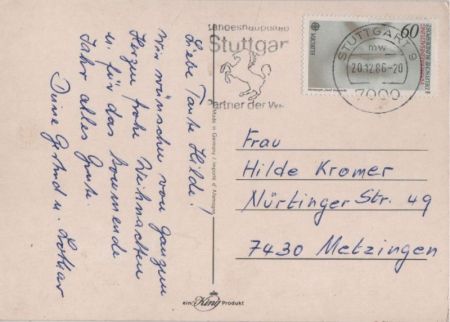 Landeshauptstadt
Stuttgar
Partner der We
STUTTGART 9
mw
20.12.86-20
7000
60
DEUTSCHE BUNDESPOST
Liebe Tante Hilde!
Wir wünschen von ganzem
Herzen frohe Weihnachten
u. für das kommende
Jahr alles Gute.
Deine Gertrud u. Lothar
Frau
Hilde Kromer
Nürtinger Str. 49
7430 Metzingen
Made in Germany / Importé d'Allemagne
ein King Produkt